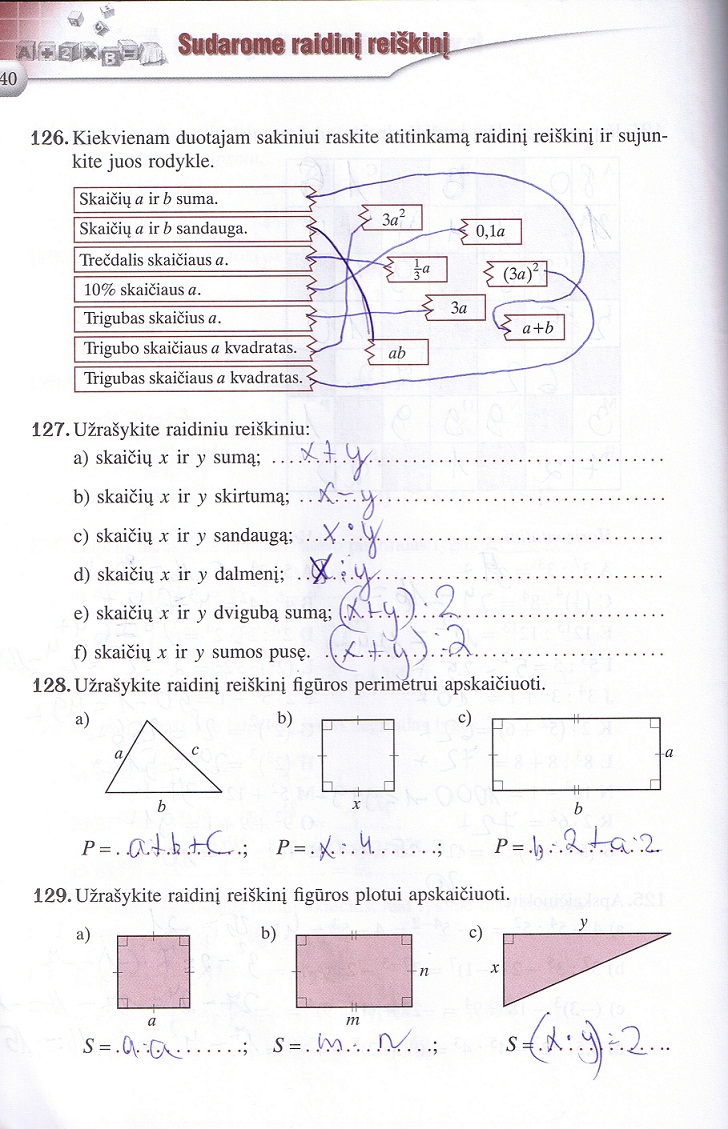 A + 2 × B =
Sudarome raidinį reiškinį
40
126. Kiekvienam duotajam sakiniui raskite atitinkamą raidinį reiškinį ir sujun-
kite juos rodykle.
Skaičių a ir b suma.
Skaičių a ir b sandauga.
Trečdalis skaičiaus a.
10% skaičiaus a.
Trigubas skaičius a.
Trigubo skaičiaus a kvadratas.
Trigubas skaičiaus a kvadratas.
3a²
0,1a
1/3 a
(3a)²
3a
a+b
ab
127. Užrašykite raidiniu reiškiniu:
a) skaičių x ir y sumą; x + y
b) skaičių x ir y skirtumą; x − y
c) skaičių x ir y sandaugą; x · y
d) skaičių x ir y dalmenį; x : y
e) skaičių x ir y dvigubą sumą; (x+y) · 2
f) skaičių x ir y sumos pusę. (x + y) : 2
128. Užrašykite raidinį reiškinį figūros perimetrui apskaičiuoti.
a) b) c)
a c a
b x b
P = a+b+c ; P = x · 4 ; P = b · 2 + a · 2
129. Užrašykite raidinį reiškinį figūros plotui apskaičiuoti.
a) b) c) y
n x
a m
S = a · a ; S = m · n ; S = (x · y) : 2